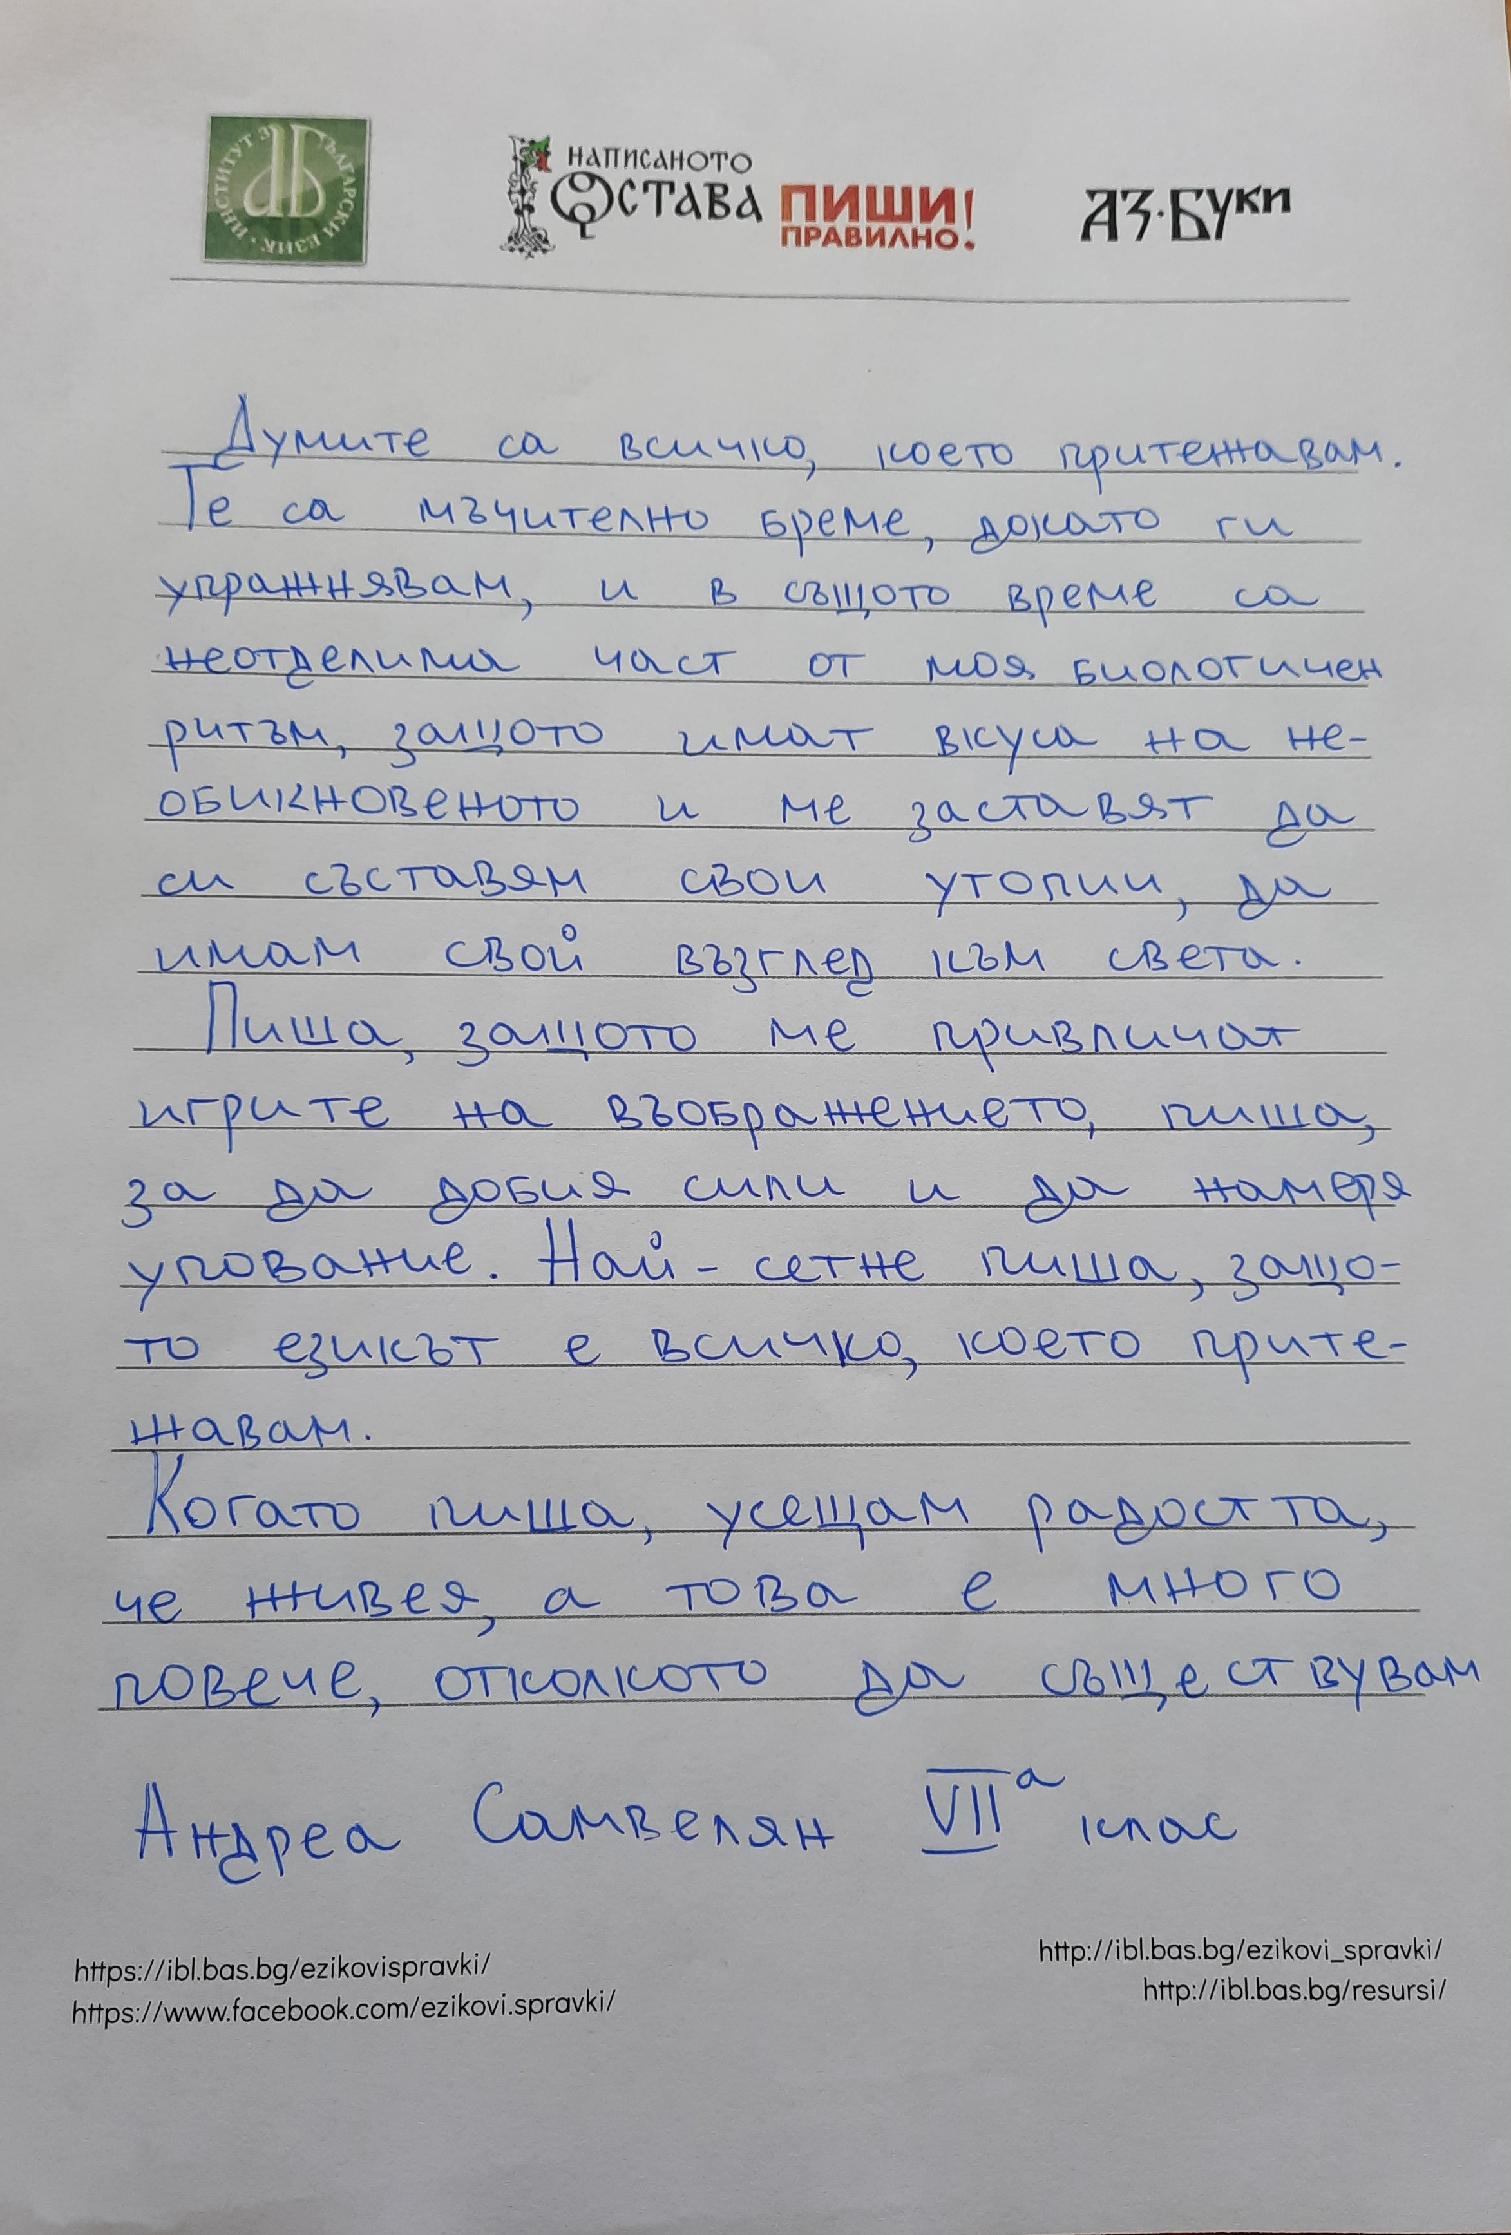 ИНСТИТУТ ЗА БЪЛГАРСКИ ЕЗИК
НАПИСАНОТО
ОСТАВА
ПИШИ!
ПРАВИЛНО!
АЗ·БУКИ
Думите са всичко, което притежавам.
Те са мъчително бреме, докато ги
упражнявам, и в същото време са
неотделима част от моя биологичен
ритъм, защото имат вкуса на не-
обикновеното и ме заставят да
си съставям свои утопии, да
имам свой възглед към света.
Пиша, защото ме привличат
игрите на въображението, пиша,
за да добия сили и да намеря
упование. Най-сетне пиша, защо-
то езикът е всичко, което прите-
жавам.
Когато пиша, усещам радостта,
че живея, а това е много
повече, отколкото да съществувам
Андреа Самвелян VII а клас
https://ibl.bas.bg/ezikovispravki/
https://www.facebook.com/ezikovi.spravki/
http://ibl.bas.bg/ezikovi_spravki/
http://ibl.bas.bg/resursi/